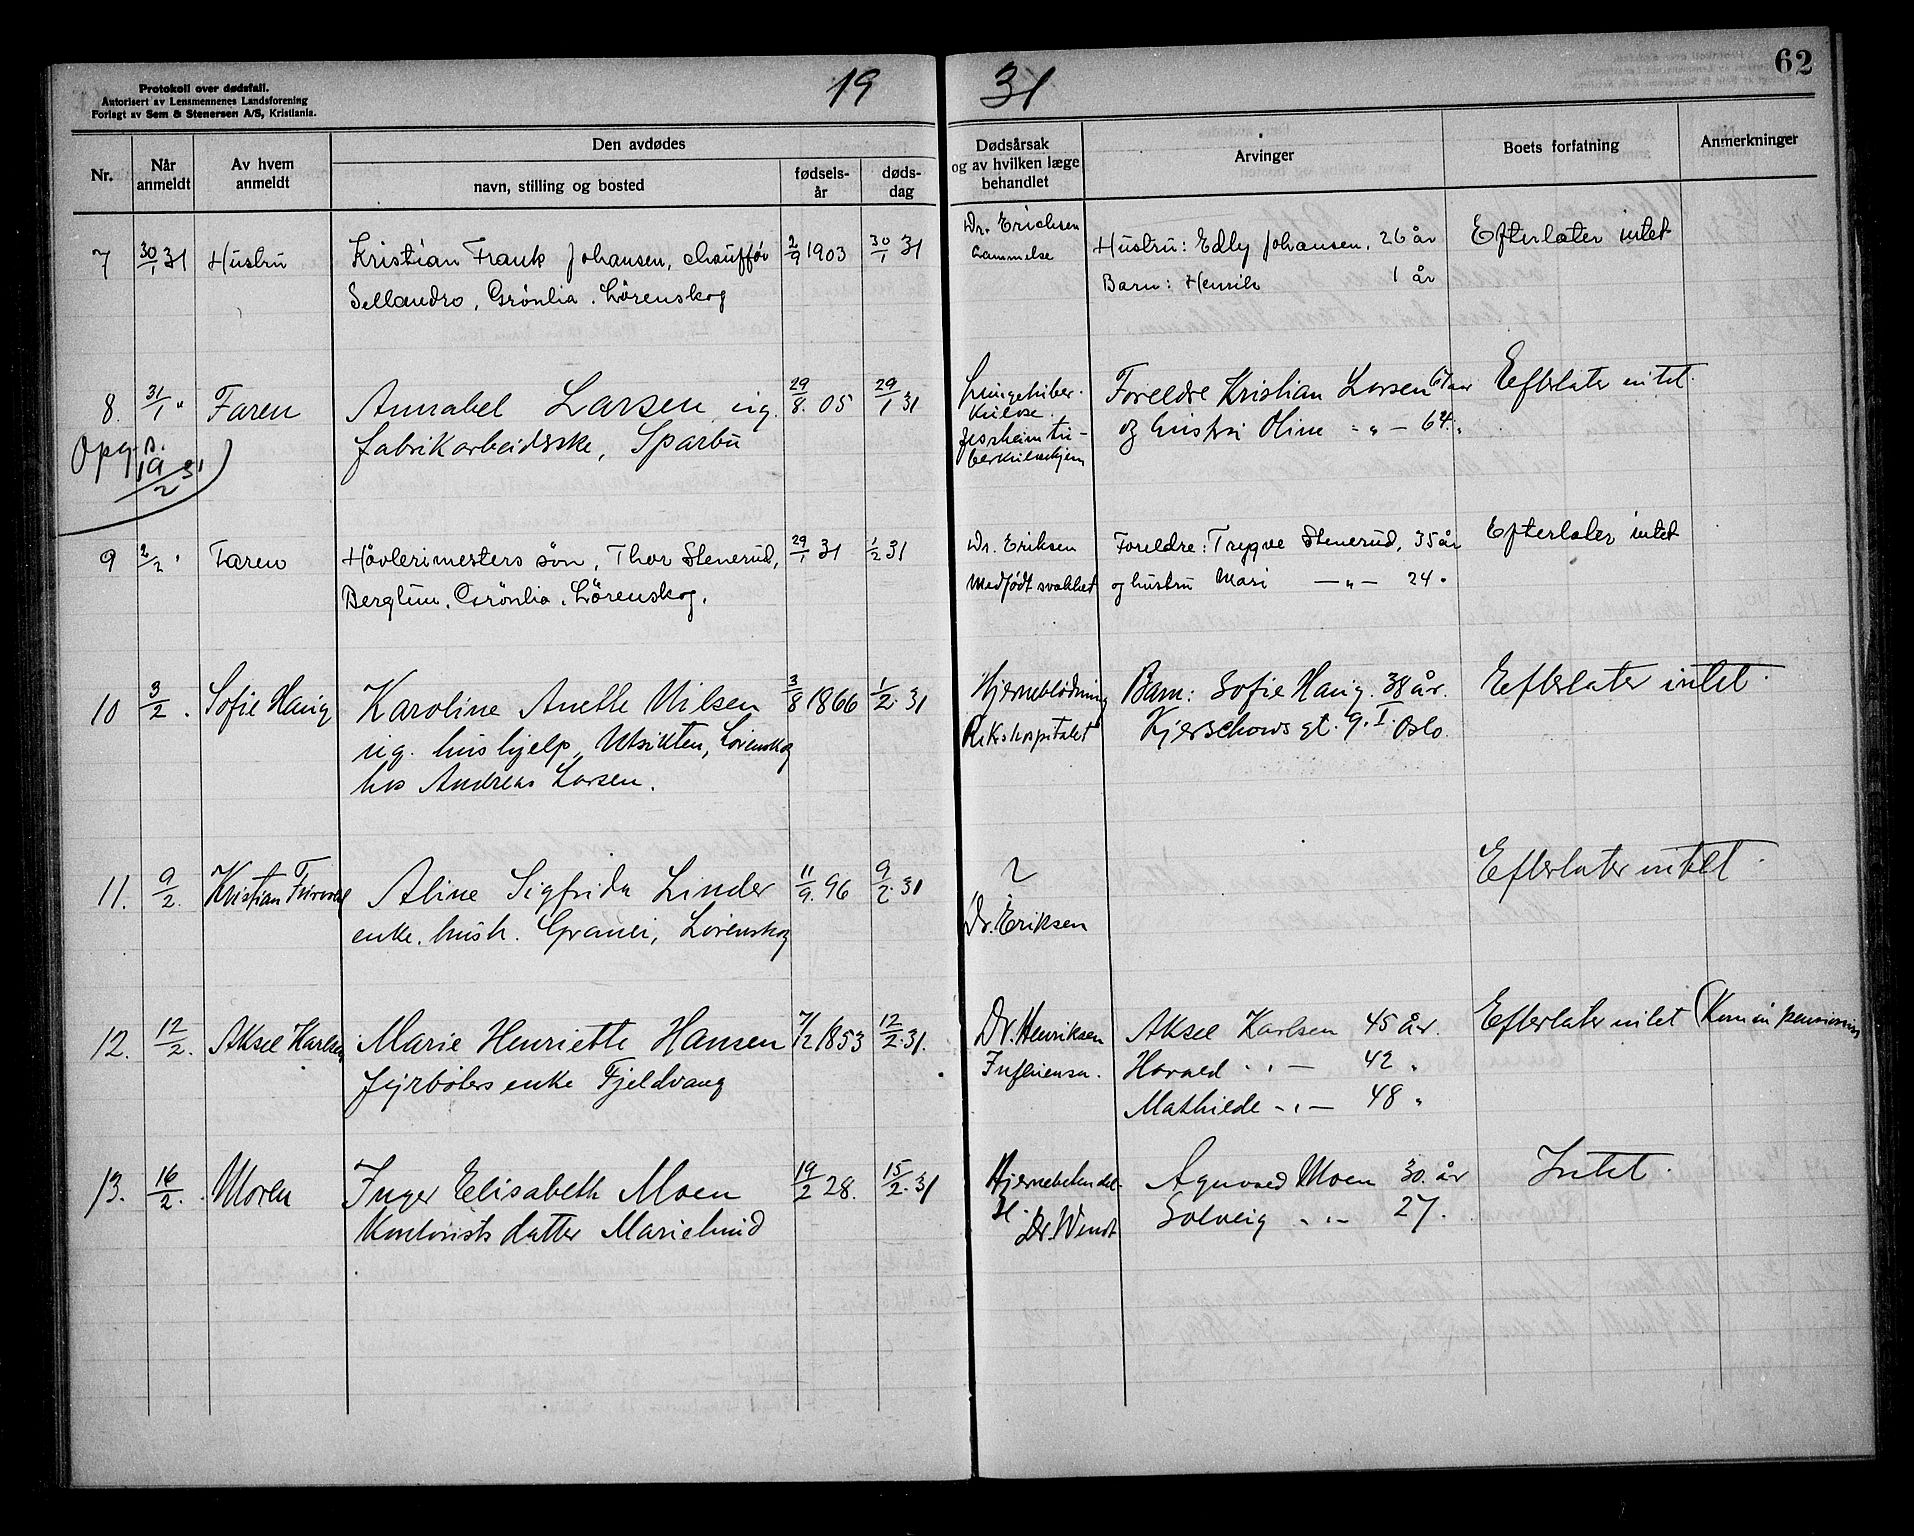 Protokoll over dødsfall.
Autorisert av Lensmennenes Landsforening
Forlagt av Sem & Stenersen A/S, Kristiania.
19 31
62
Nr.
Når anmeldt
Av hvem anmeldt
Den avdødes
navn, stilling og bosted
fødsels-år
døds-dag
Dødsårsak og av hvilken læge behandlet
Arvinger
Boets forfatning
Anmerkninger
7 30/1 31 Hustru Kristian Frank Johansen, chauffør 2/9 1903 30/1 31 Dr. Erichsen Hustru: Edly Johansen, 26 år Efterlater intet
Sellandro, Grönlia. Lörenskog Lammelse Barn: Henrik 1 år
8. 31/1 " Faren Annabel Larsen ug. 29/8. 05 29/1 31 Lungetuber- Foreldre Kristian Larsen 67 aar Efterlater intet.
fabrikarbeiderske, Sparbu kulose. og hustru Oline -"- 64 "
Jessheim tu-
berkulosehjem
Opg. s. 19/2 31
9 2/2 " Faren Hövlerimesters sön, Thor Stenerud, 29/1 31 1/2 31 Dr. Eriksen Foreldre: Trygve Stenerud, 35 år Efterlater intet
Berglun, Grönlia, Lörenskog. Medfödt svakhet og hustru Mari -"- 24 "
10 3/2. Sofie Haug Karoline Anette Nilsen 3/8 1866 1/2. 31 Hjerneblødning Barn: Sofie Haug. 38 år. Efterlater intet.
ug. hushjelp, Utsikten, Lørenskog Rikshospitalet Kjerschows gt. 9. I. Oslo.
hos Andreas Larsen.
11. 9/2. Kristian Aline Sigfrida Linder 11/9. 96 9/2. 31 ? Efterlater intet.
enke, hush. Granli, Lørenskog Dr. Eriksen
12. 12/2. Aksel Karlsen Marie Henriette Hansen 7/2 1853 12/2. 31. Dr. Henriksen Aksel Karlsen 45 år. Efterlater intet
fyrbøters enke Fjeldvang Influensa. Harald -"- 42 "
Mathilde -"- 48 "
13. 16/2. Moren Inger Elisabeth Moen 19/2 28. 15/2. 31 Hjernebetendel- Moen 30. år Intet.
Kontorists datter Marielund se. Dr. Wendt Solveig -"- 27.